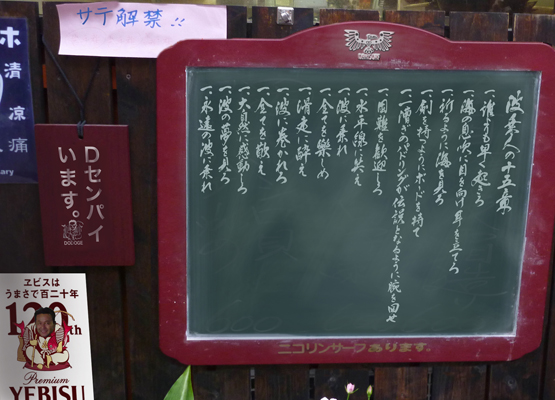 サテ解禁!!
ホ
清涼
痛
Dセンパイ
います。
DOLOGE
ヱビスは
うまさで百二十年
120th
Premium
YEBISU
波乗人の十五ヶ条
一、誰より早く起きろ
一、海の息吹に目を向け耳を立てろ
一、祈るように海を見ろ
一、剣を持つようにボードを持て
一、一漕ぎのパドリングが伝説となるように腕を回せ
一、困難を歓迎しろ
一、水平線に笑え
一、波に乗れ
一、全てを楽しめ
一、滑走に酔え
一、波に巻かれろ
一、全てを敬え
一、大自然に感動しろ
一、波の夢を見ろ
一、永遠の波に乗れ
ニコリンサーフあります。